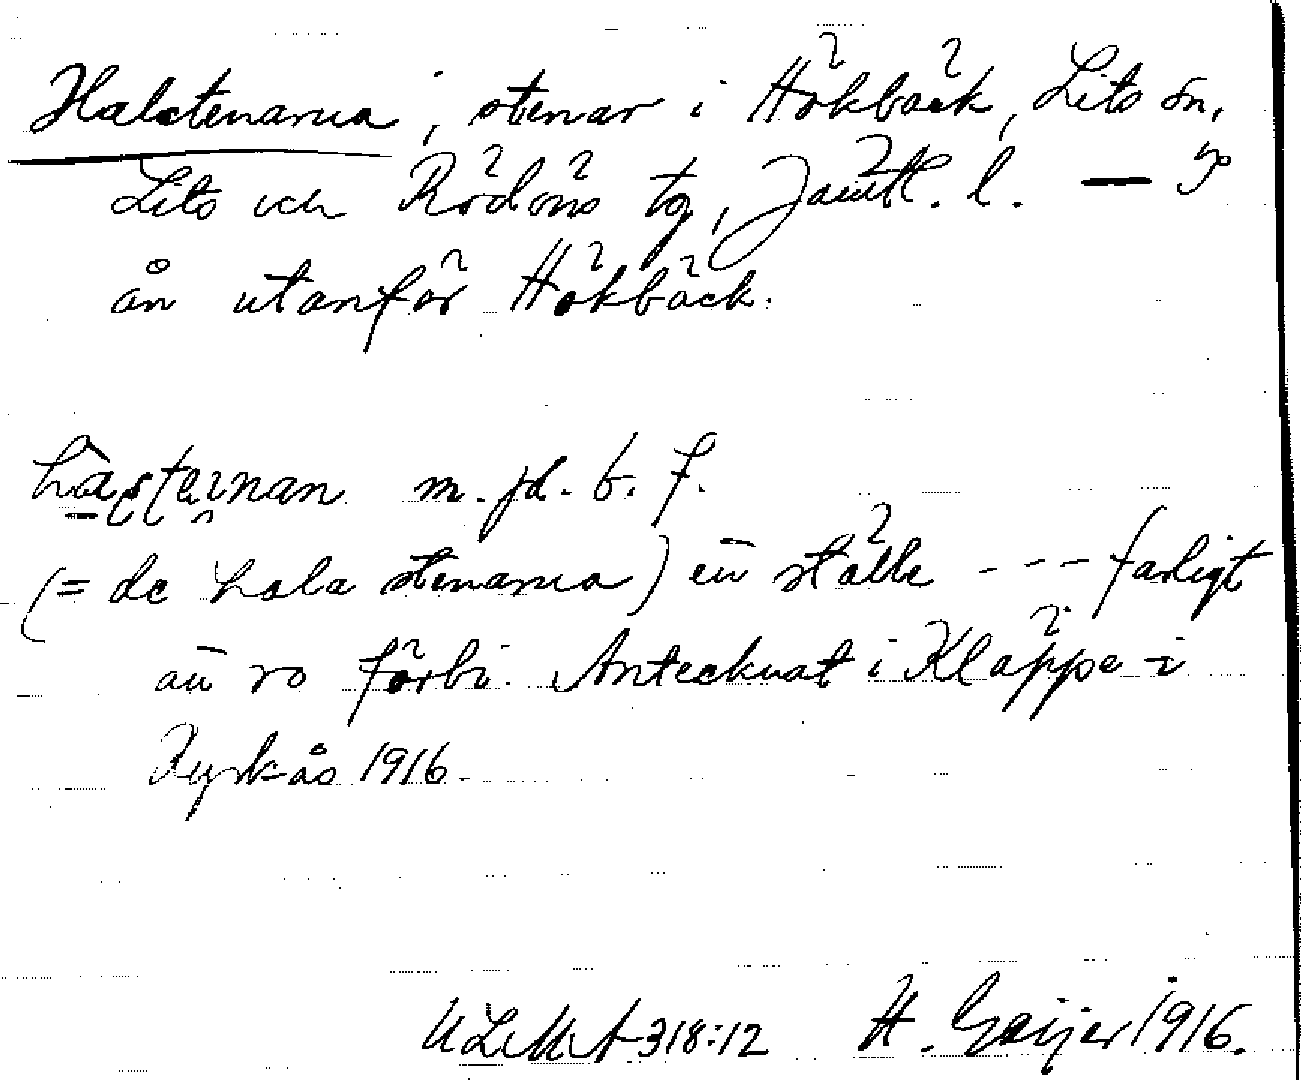 Halstenarna, stenar i Hökbäck, Lits sn,
Lits och Rödöns tg, Jämtl. l. — I
ån utanför Hökbäck.
m. pl. b. f.
(= de hala stenarna) ett ställe --- farligt
att ro förbi. Antecknat i Kläppe i
Kyrkås 1916.
ULMA 318:12 H. Geijer 1916.